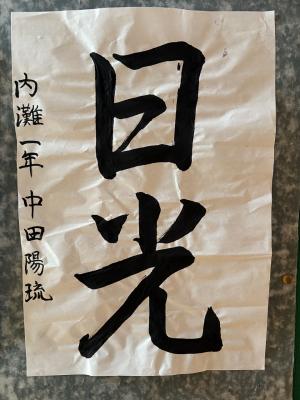 日光
内灘一年中田陽琉